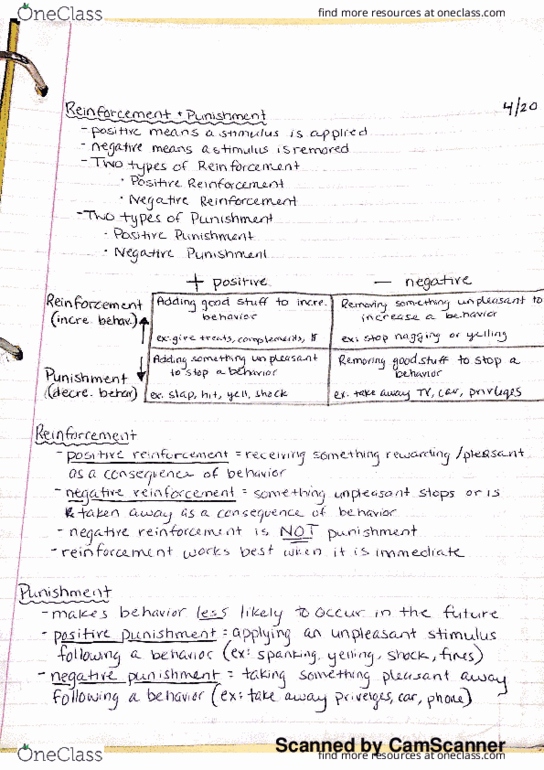 OneClass
find more resources at oneclass.com
4/20
Reinforcement + Punishment
- positive means a stimulus is applied
- negative means a stimulus is removed
- Two types of Reinforcement
• Positive Reinforcement
• Negative Reinforcement
- Two types of Punishment
• Positive Punishment
• Negative Punishment
+ positive
— negative
Reinforcement
(incre. behav.)
Adding good stuff to incre.
behavior
ex: give treats, complements, $
Removing something unpleasant to
increase a behavior
ex: stop nagging or yelling
Punishment
(decre. behav)
Adding something unpleasant
to stop a behavior
ex. slap, hit, yell, shock
Removing good stuff to stop a
behavior
ex. take away TV, car, privleges
Reinforcement
- positive reinforcement = receiving something rewarding/pleasant
as a consequence of behavior
- negative reinforcement = something unpleasant stops or is
taken away as a consequence of behavior
- negative reinforcement is NOT punishment
- reinforcement works best when it is immediate
Punishment
- makes behavior less likely to occur in the future
- positive punishment = applying an unpleasant stimulus
following a behavior (ex: spanking, yelling, shock, fines)
- negative punishment = taking something pleasant away
following a behavior (ex: take away priveleges, car, phone)
Scanned by CamScanner
OneClass
find more resources at oneclass.com